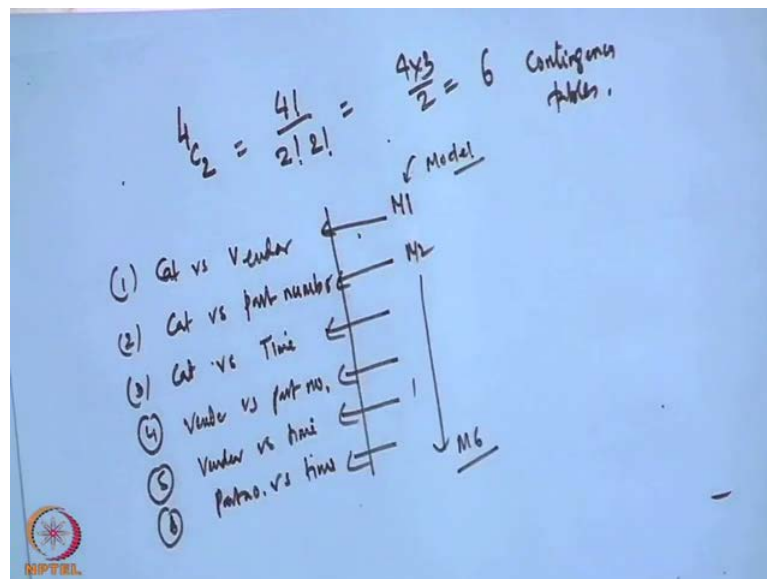 4C2 = 4! / 2! 2! = 4x3 / 2 = 6 Contingency tables.
Model
(1) Cat vs Vendor M1
(2) Cat vs part number M2
(3) Cat vs Time
(4) Vendor vs part no.
(5) Vendor vs time
(6) Part no. vs time M6
NPTEL